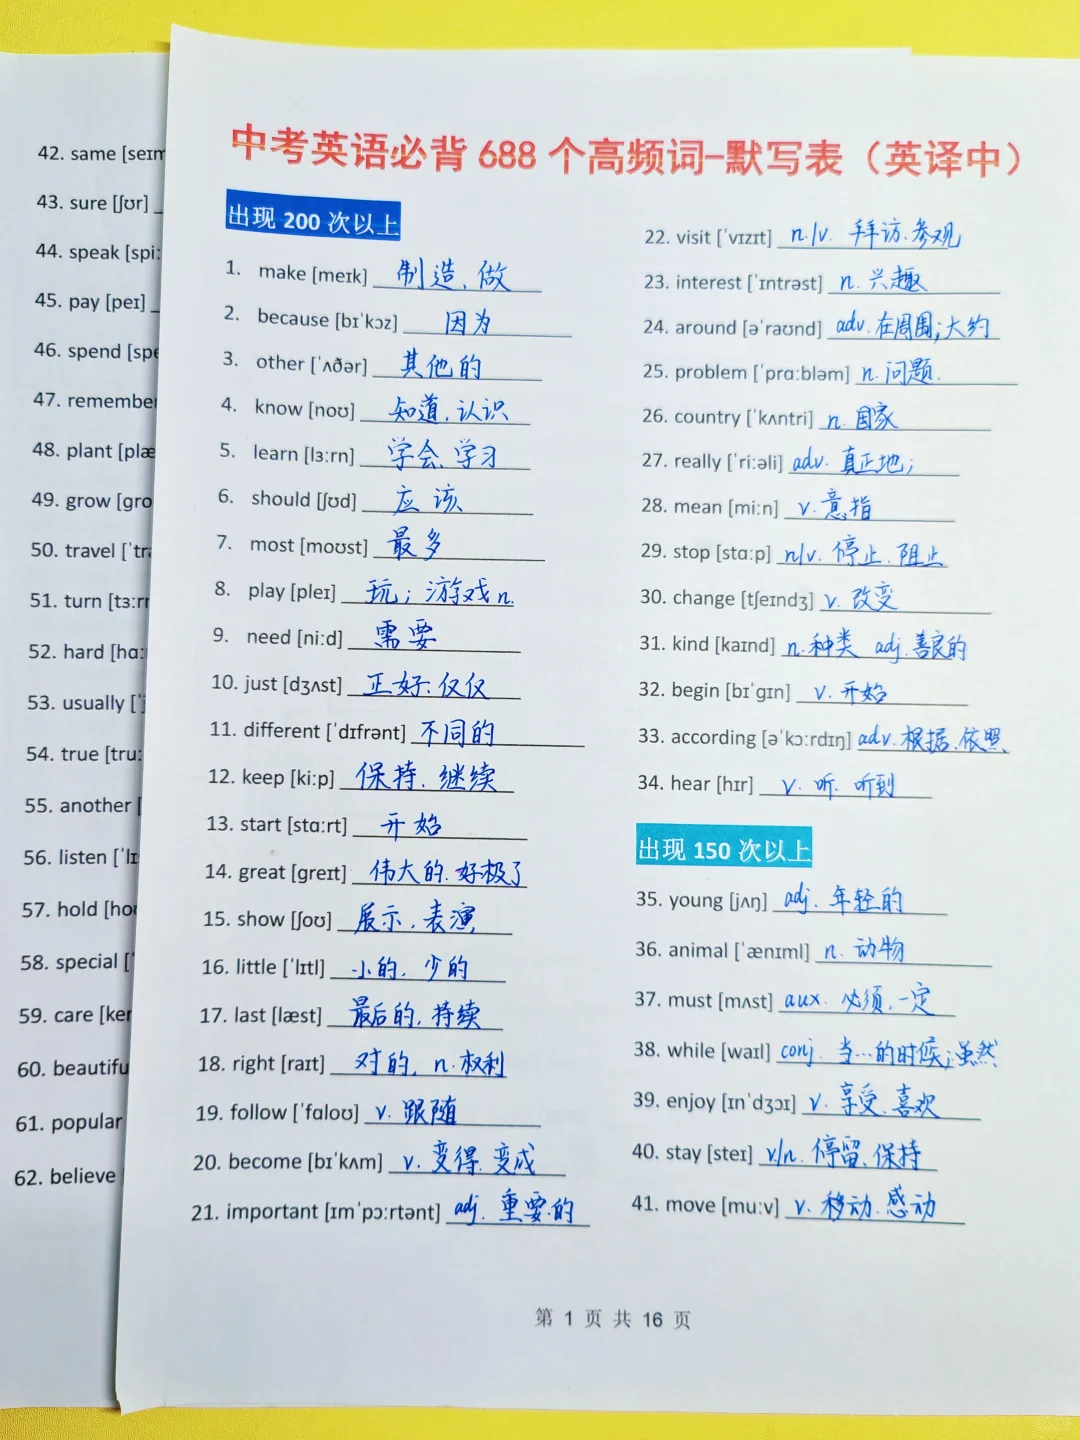 42. same [seɪm
43. sure [ʃʊr]
44. speak [spiː
45. pay [peɪ]
46. spend [spe
47. remember
48. plant [plæ
49. grow [ɡro
50. travel [ˈtræ
51. turn [tɜːrn
52. hard [hɑː
53. usually [ˈj
54. true [truː
55. another [
56. listen [ˈlɪs
57. hold [hoʊ
58. special [ˈ
59. care [ker
60. beautifu
61. popular
62. believe
中考英语必背 688 个高频词-默写表（英译中）
出现 200 次以上
1. make [meɪk] 制造、做
2. because [bɪˈkɔz] 因为
3. other [ˈʌðər] 其他的
4. know [noʊ] 知道、认识
5. learn [lɜːrn] 学会、学习
6. should [ʃʊd] 应该
7. most [moʊst] 最多
8. play [pleɪ] 玩；游戏 n.
9. need [niːd] 需要
10. just [dʒʌst] 正好、仅仅
11. different [ˈdɪfrənt] 不同的
12. keep [kiːp] 保持、继续
13. start [stɑːrt] 开始
14. great [ɡreɪt] 伟大的、好极了
15. show [ʃoʊ] 展示、表演
16. little [ˈlɪtl] 小的、少的
17. last [læst] 最后的，持续
18. right [raɪt] 对的，n. 权利
19. follow [ˈfɑloʊ] v. 跟随
20. become [bɪˈkʌm] v. 变得、变成
21. important [ɪmˈpɔːrtənt] adj. 重要的
22. visit [ˈvɪzɪt] n./v. 拜访、参观
23. interest [ˈɪntrəst] n. 兴趣
24. around [əˈraʊnd] adv. 在周围；大约
25. problem [ˈprɑːbləm] n. 问题.
26. country [ˈkʌntri] n. 国家
27. really [ˈriːəli] adv. 真正地；
28. mean [miːn] v. 意指
29. stop [stɑːp] n/v. 停止、阻止
30. change [tʃeɪndʒ] v. 改变
31. kind [kaɪnd] n. 种类 adj. 善良的
32. begin [bɪˈɡɪn] v. 开始
33. according [əˈkɔːrdɪŋ] adv. 根据、依照
34. hear [hɪr] v. 听、听到
出现 150 次以上
35. young [jʌŋ] adj. 年轻的
36. animal [ˈænɪml] n. 动物
37. must [mʌst] aux. 必须，一定
38. while [waɪl] conj. 当…的时候；虽然
39. enjoy [ɪnˈdʒɔɪ] v. 享受、喜欢
40. stay [steɪ] v/n. 停留、保持
41. move [muːv] v. 移动、感动
第 1 页 共 16 页